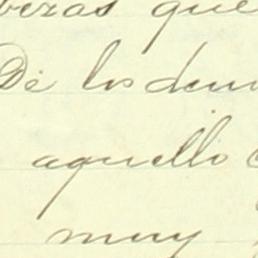 beras que
De los dem
aquello
muy